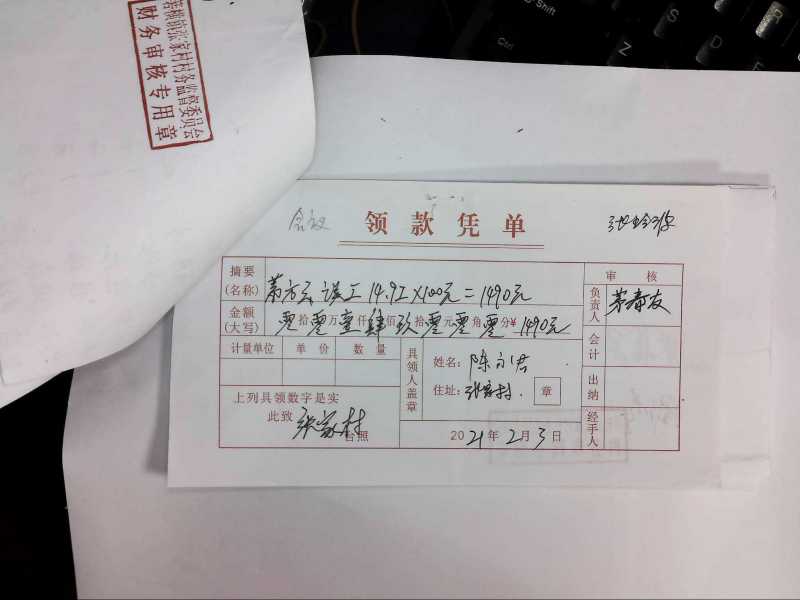 张家村村务监督委员会
财务审核专用章
Shift
Ctrl
Z
S
D
领款凭单
摘要
(名称)
误工 14.9工×100元=1490元
审核
负责人
金额
(大写)
零拾零万壹仟肆佰玖拾零元零角零分¥1490元
计量单位 单价 数量
具领人盖章
姓名:陈
住址:张家村.
章
会计
出纳
经手人
上列具领数字是实
此致
张家村
台照
2021年2月3日